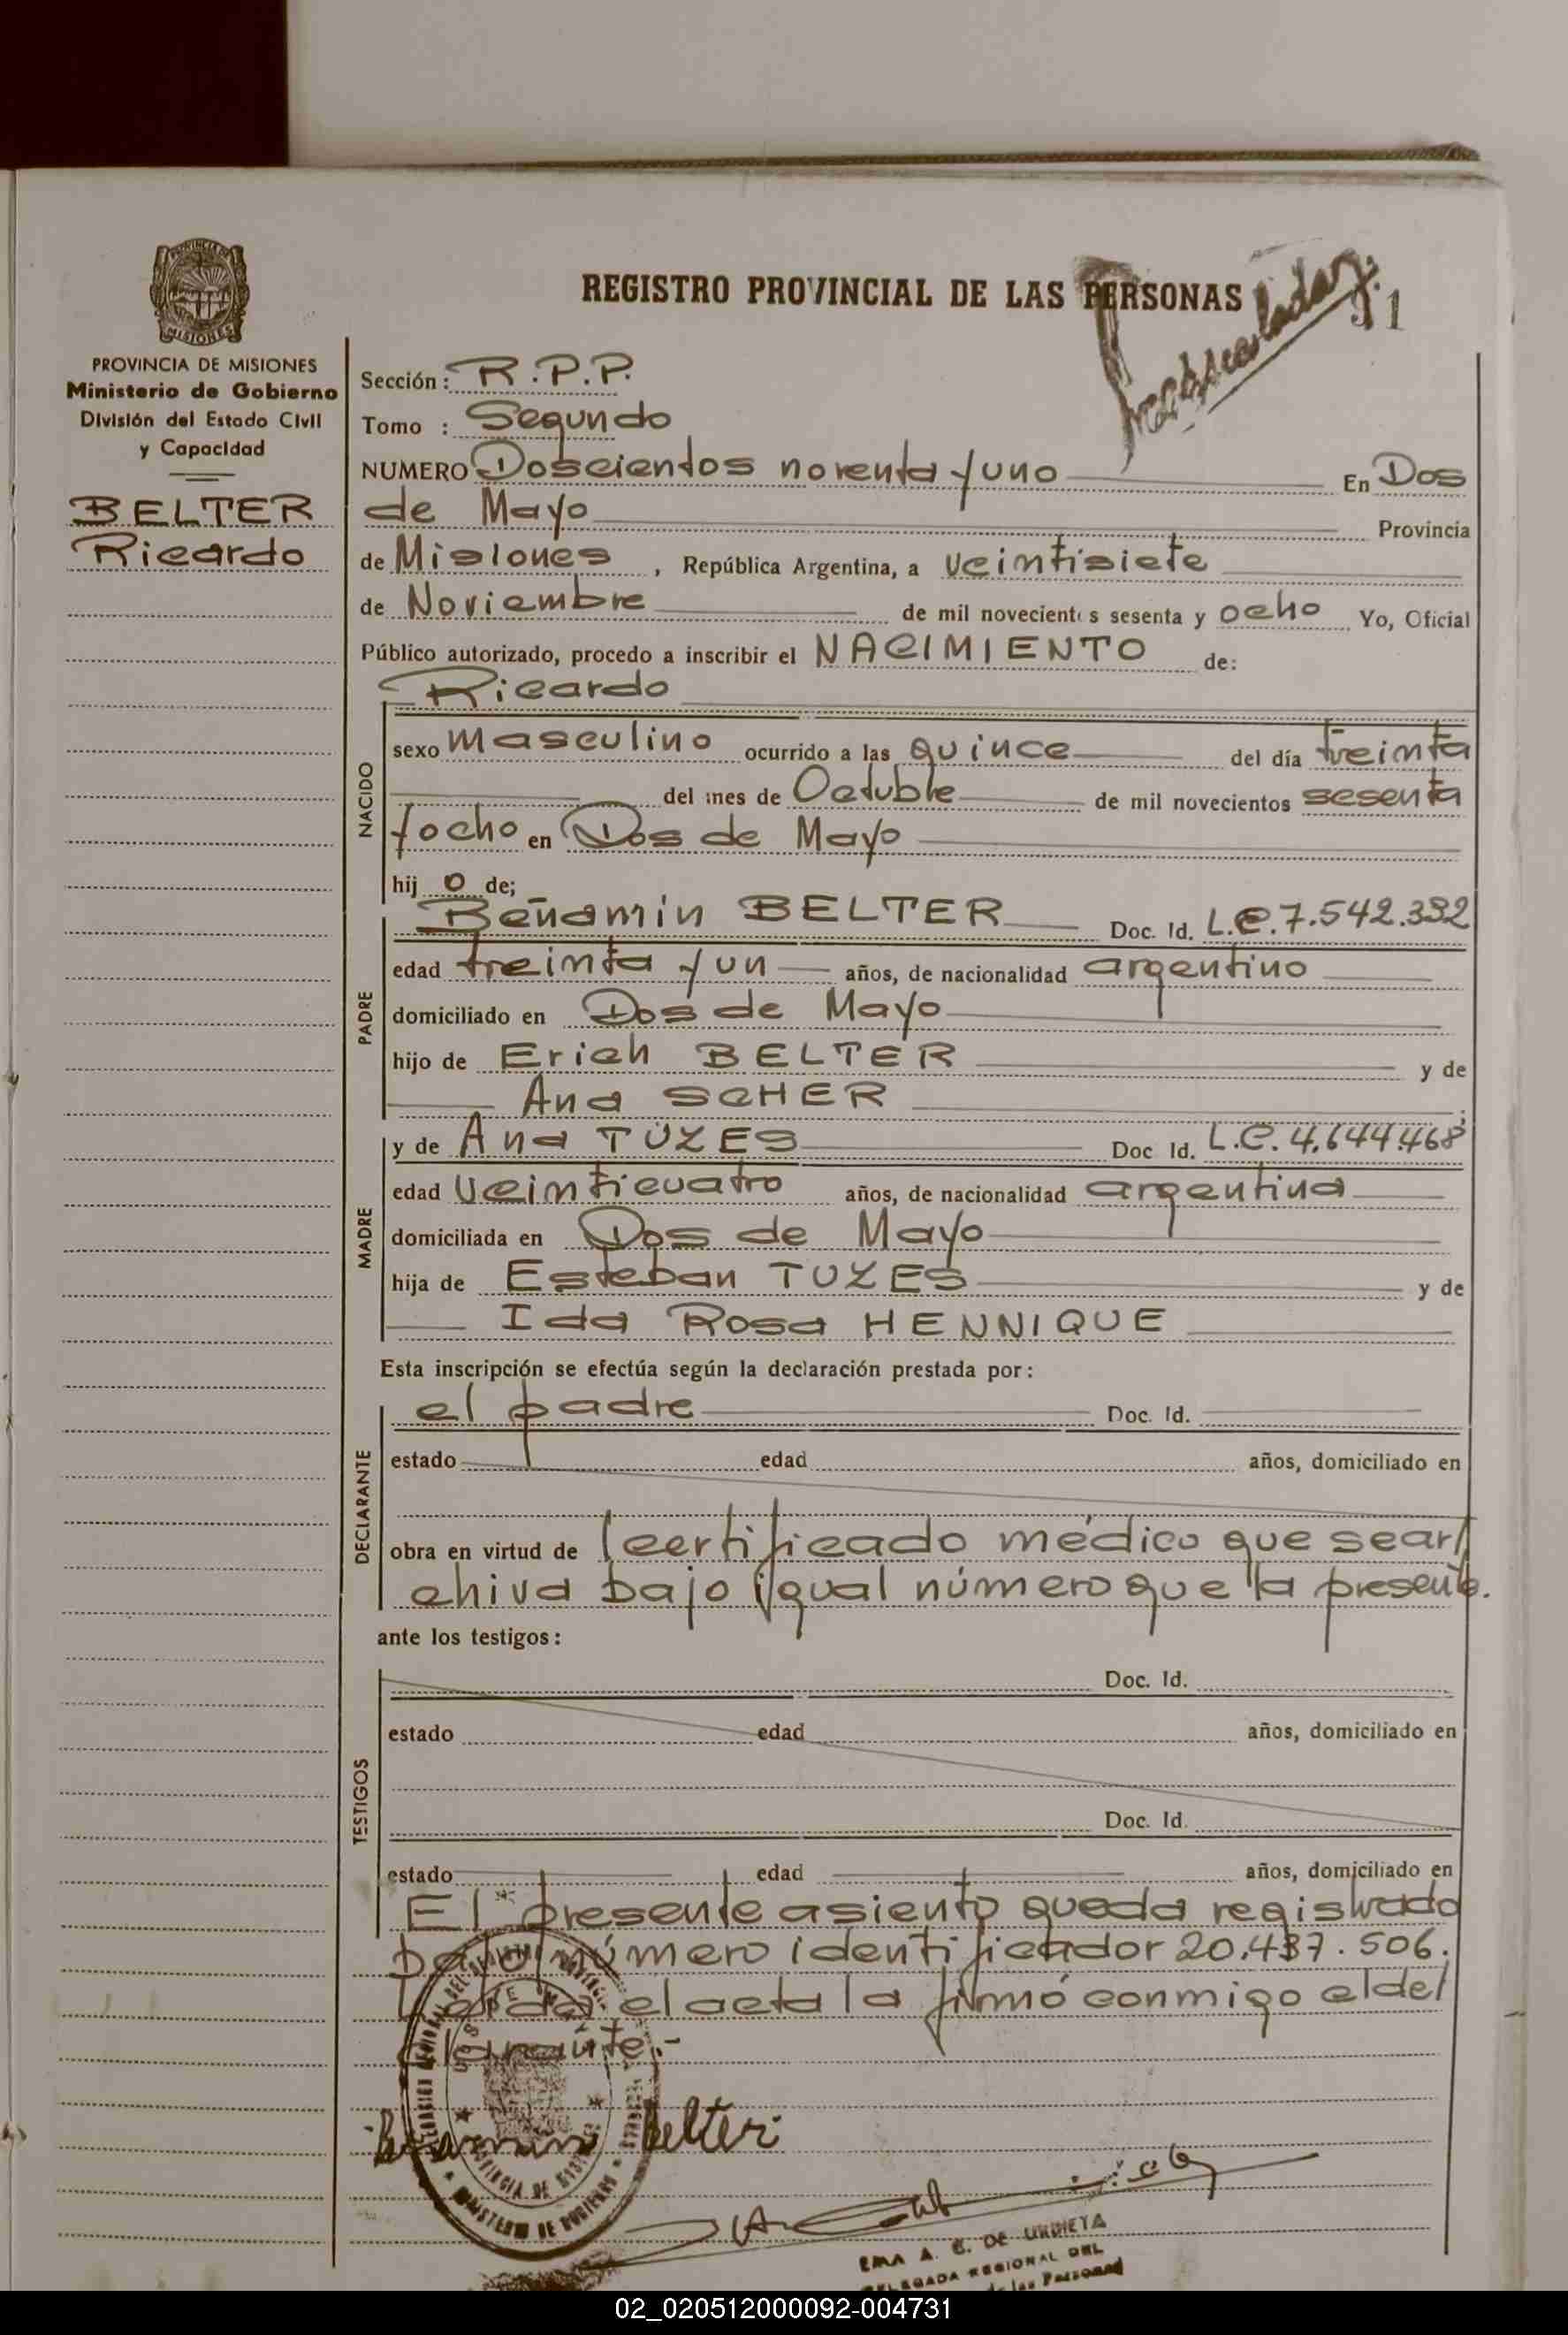 REGISTRO PROVINCIAL DE LAS PERSONAS
MISIONES
PROVINCIA DE MISIONES
Ministerio de Gobierno
División del Estado Civil
y Capacidad
BELTER
Ricardo
Sección: R.P.P.
Tomo : Segundo
NUMERO Doscientos noventa y uno En Dos
de Mayo Provincia
de Misiones, República Argentina, a veintisiete
de Noviembre de mil novecientos sesenta y ocho Yo, Oficial
Público autorizado, procedo a inscribir el NACIMIENTO de:
Ricardo
NACIDO
sexo masculino ocurrido a las quince del día treinta
del mes de Octubre de mil novecientos sesenta
y ocho en Dos de Mayo
hij o de;
PADRE
Beñamin BELTER Doc. Id. L.E.7.542.332
edad treinta y un años, de nacionalidad argentino
domiciliado en Dos de Mayo
hijo de Erich BELTER y de
Ana SCHER ;
MADRE
y de Ana TÜZES Doc Id. L.C. 4.644.468
edad veinticuatro años, de nacionalidad argentina
domiciliada en Dos de Mayo
hija de Esteban TUZES y de
Ida Rosa HENNIQUE
Esta inscripción se efectúa según la declaración prestada por:
DECLARANTE
el padre Doc. Id.
estado edad años, domiciliado en
obra en virtud de certificado médico que se ar
chiva bajo igual número que la presente.
ante los testigos:
TESTIGOS
Doc. Id.
estado edad años, domiciliado en
Doc. Id.
estado edad años, domiciliado en
El presente asiento queda registrado
bajo número identificador 20.437.506.
Leída el acta la firmó conmigo el de
clarante.-
Benjamin Belter
EMA A. C. DE URDIETA
DELEGADA REGIONAL DEL
de las Personas
02_020512000092-004731